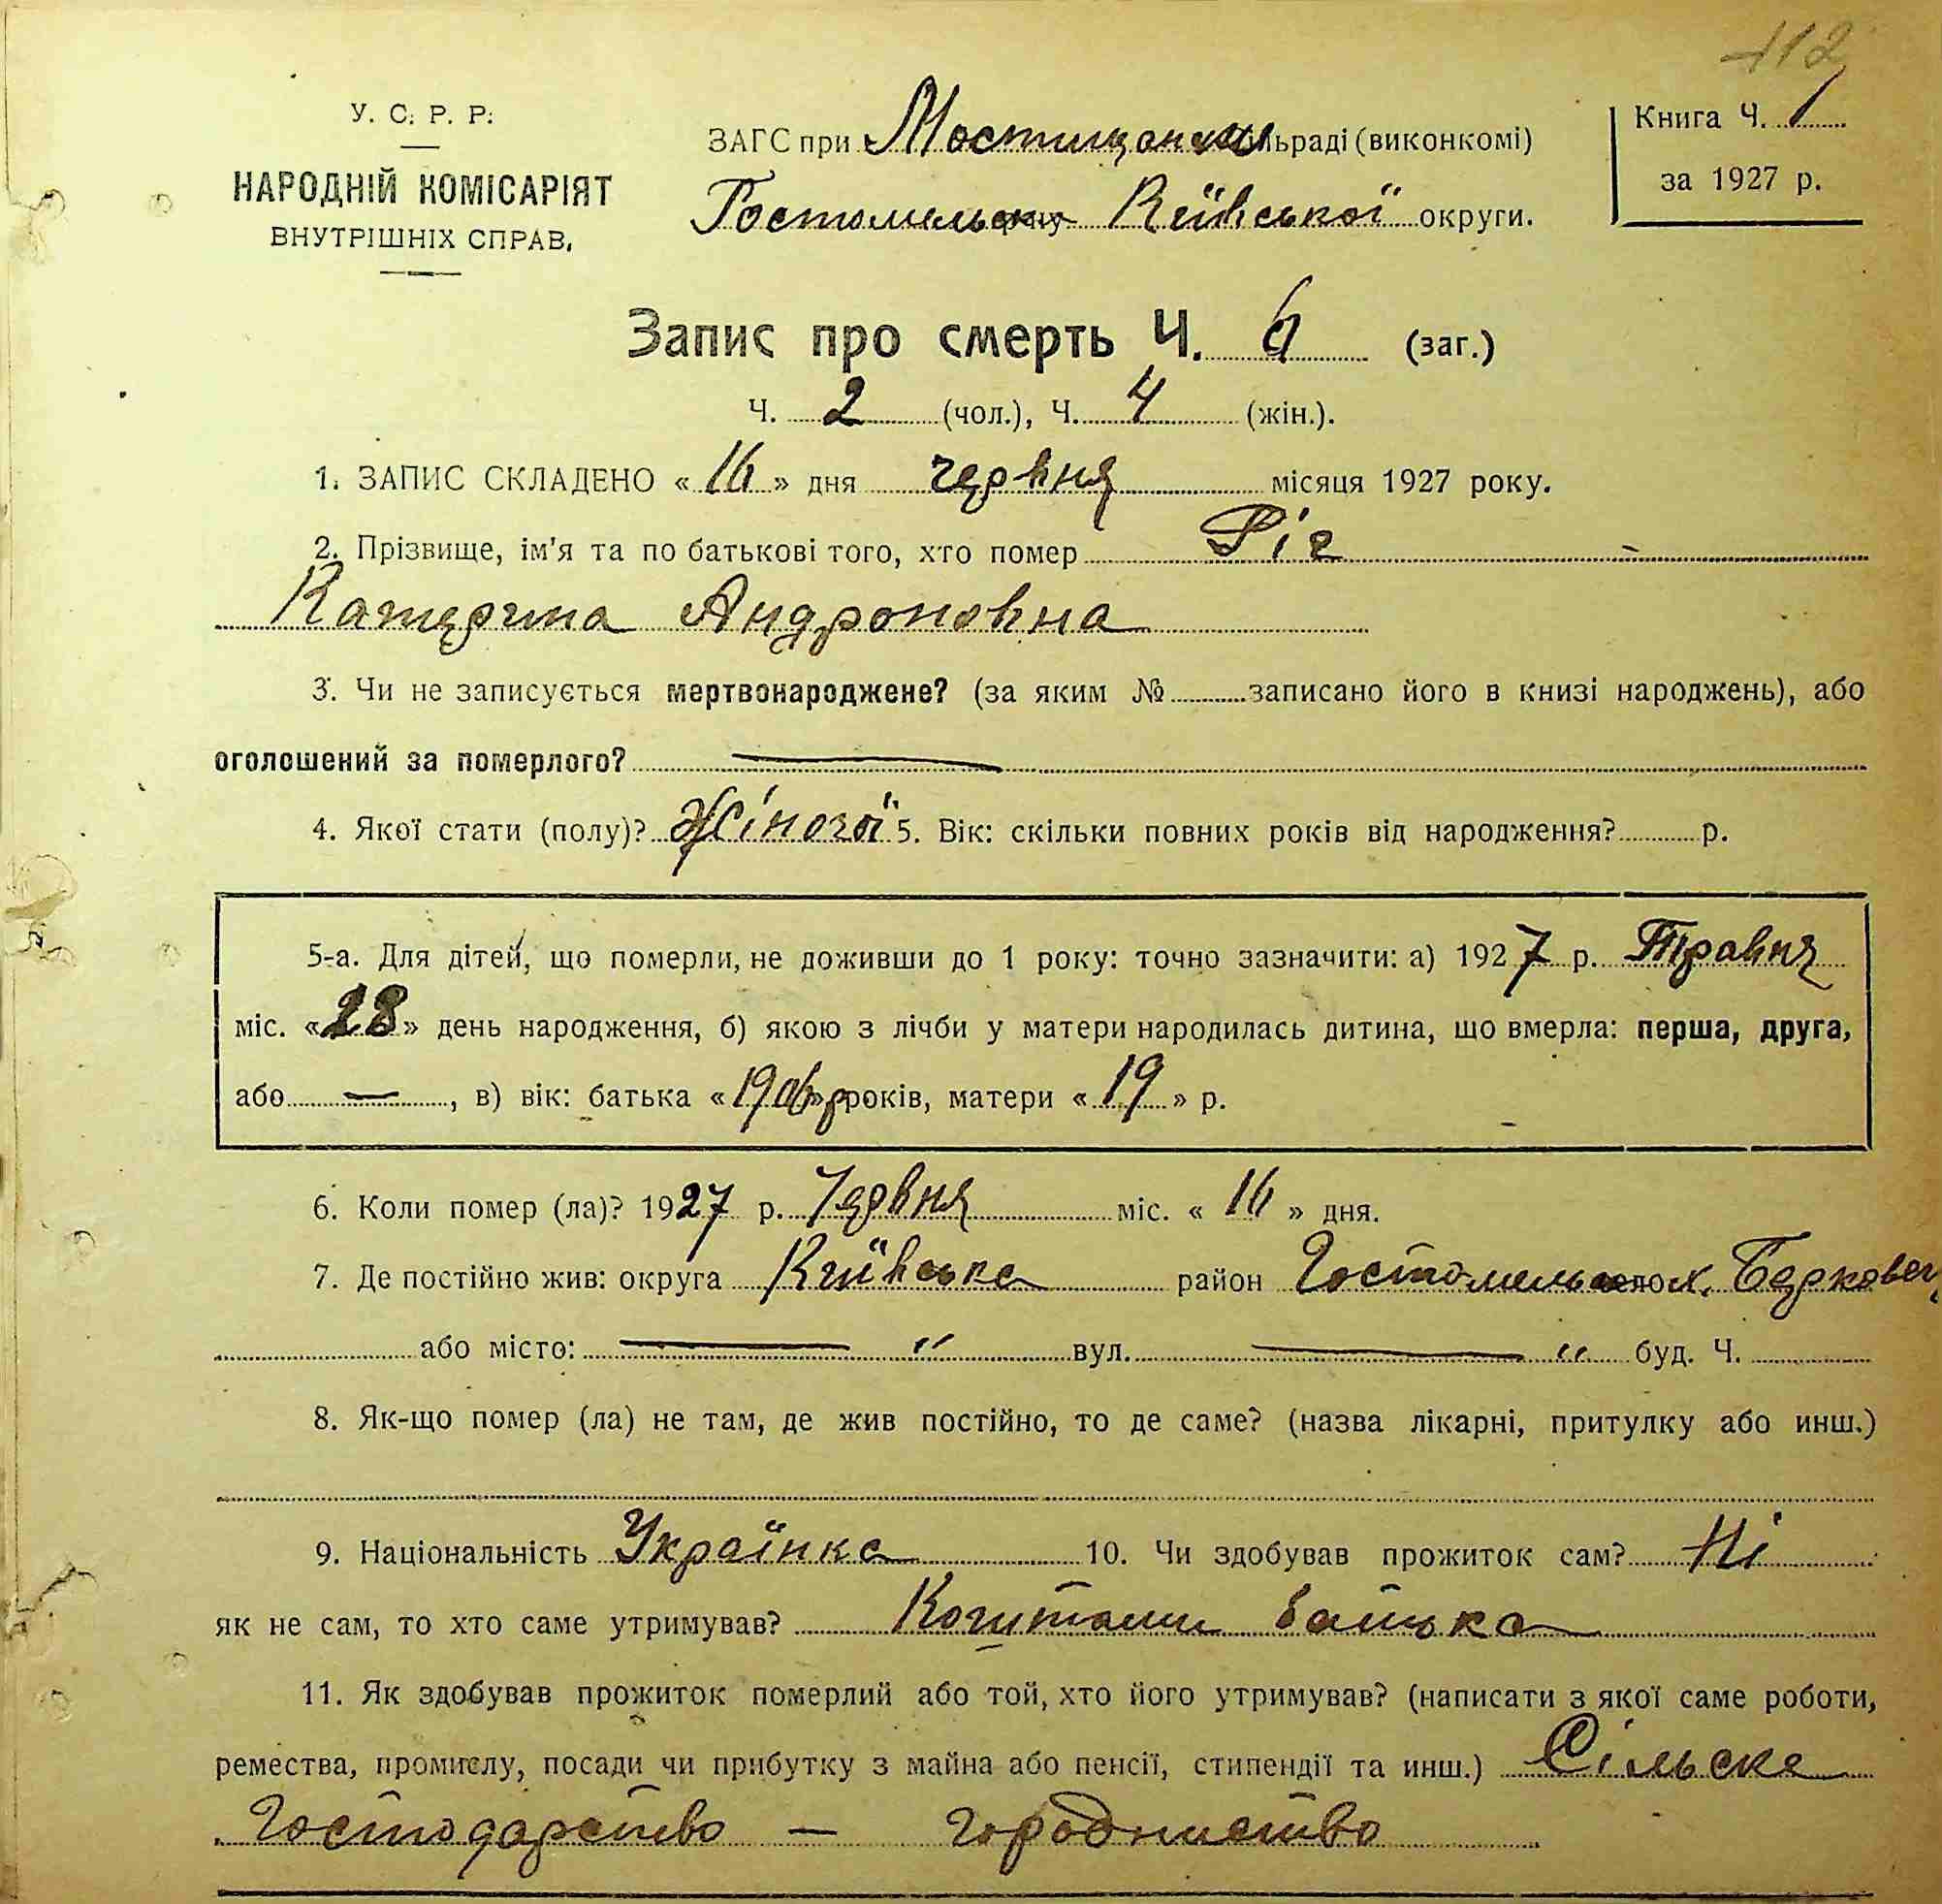 412
У. С. Р. Р.
НАРОДНІЙ КОМІСАРІЯТ
ВНУТРІШНІХ СПРАВ.
ЗАГС при Мостищанськ льраді (виконкомі)
Гостомельськ Київської округи.
Книга Ч. 1
за 1927 р.
Запис про смерть Ч. 6 (заг.)
Ч. 2 (чол.), Ч. 4 (жін.).
1. ЗАПИС СКЛАДЕНО « 16 » дня червня місяця 1927 року.
2. Прізвище, ім'я та по батькові того, хто помер Ріг
Катерина Андроновна
3. Чи не записується мертвонароджене? (за яким № записано його в книзі народжень), або
оголошений за померлого? —
4. Якої стати (полу)? Жіночої 5. Вік: скільки повних років від народження? р.
5-а. Для дітей, що померли, не доживши до 1 року: точно зазначити: а) 1927 р. Травня
міс. «28» день народження, б) якою з лічби у матери народилась дитина, що вмерла: перша, друга,
або — , в) вік: батька «1906 р» років, матери « 19 » р.
6. Коли помер (ла)? 1927 р. Червня міс. « 16 » дня.
7. Де постійно жив: округа Київська район Гостомельськ село х. Берковець
або місто: — " вул. — " буд. Ч.
8. Як-що помер (ла) не там, де жив постійно, то де саме? (назва лікарні, притулку або инш.)
9. Національність Українка 10. Чи здобував прожиток сам? Ні
як не сам, то хто саме утримував? Коштами батька
11. Як здобував прожиток померлий або той, хто його утримував? (написати з якої саме роботи,
ремества, промислу, посади чи прибутку з майна або пенсії, стипендії та инш.) Сільске
Господарство — городниство